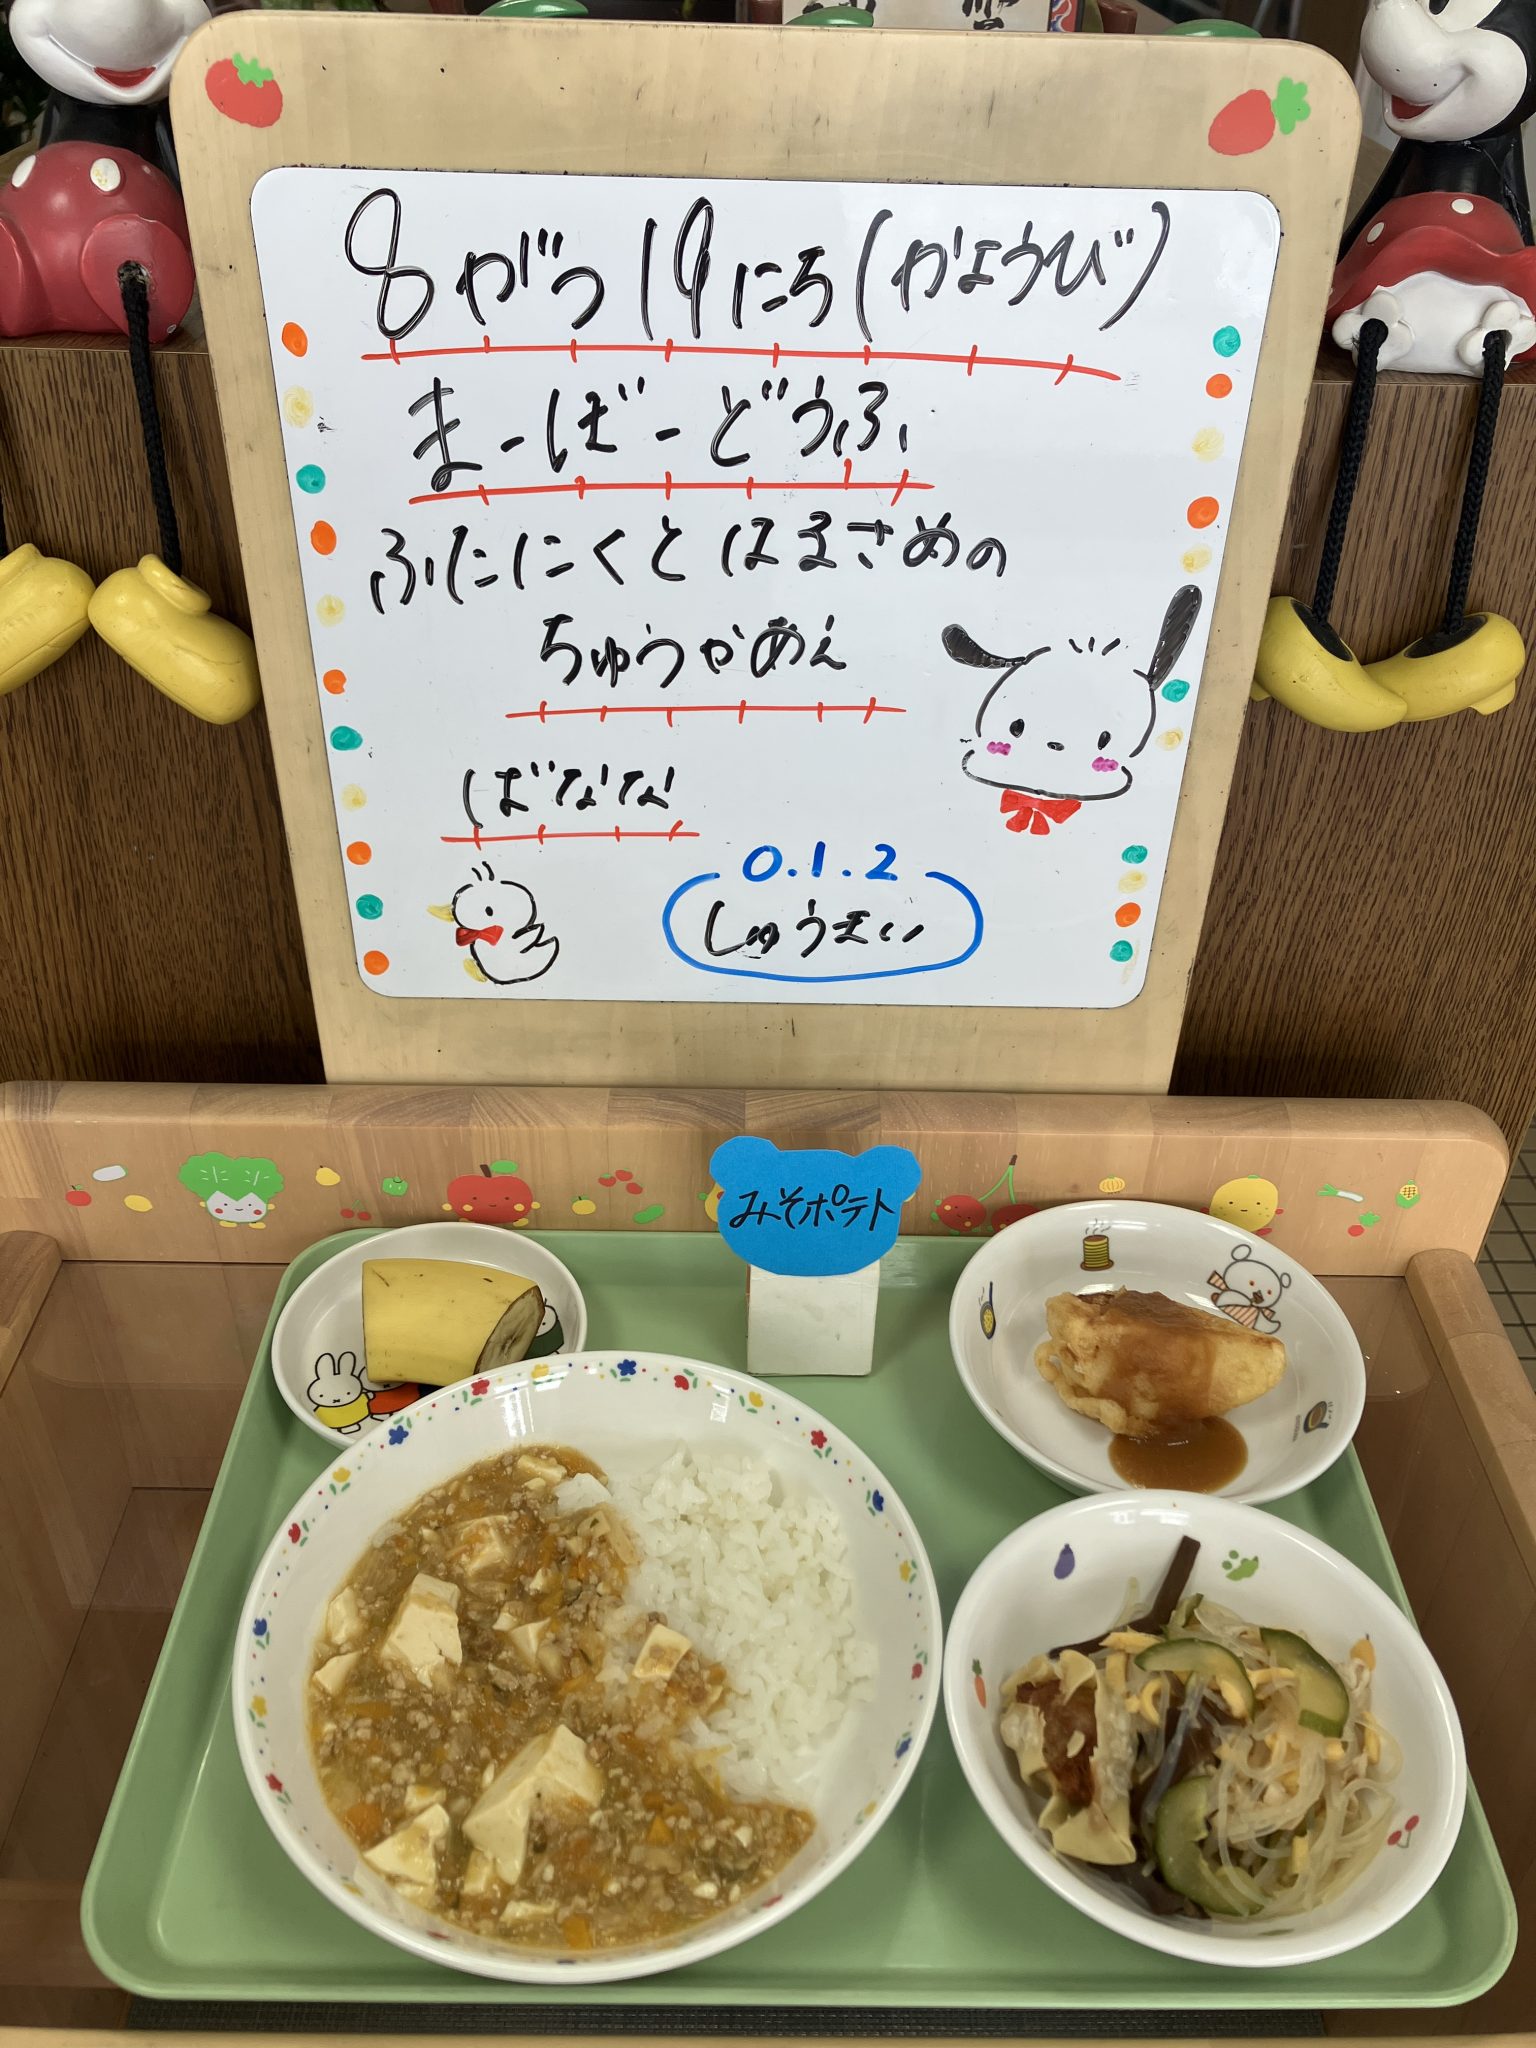 8がつ19にち(かようび)
まーぼーどうふ
ぶたにくとはるさめの
ちゅうかあえ
ばなな
0.1.2
しゅうまい
みそポテト